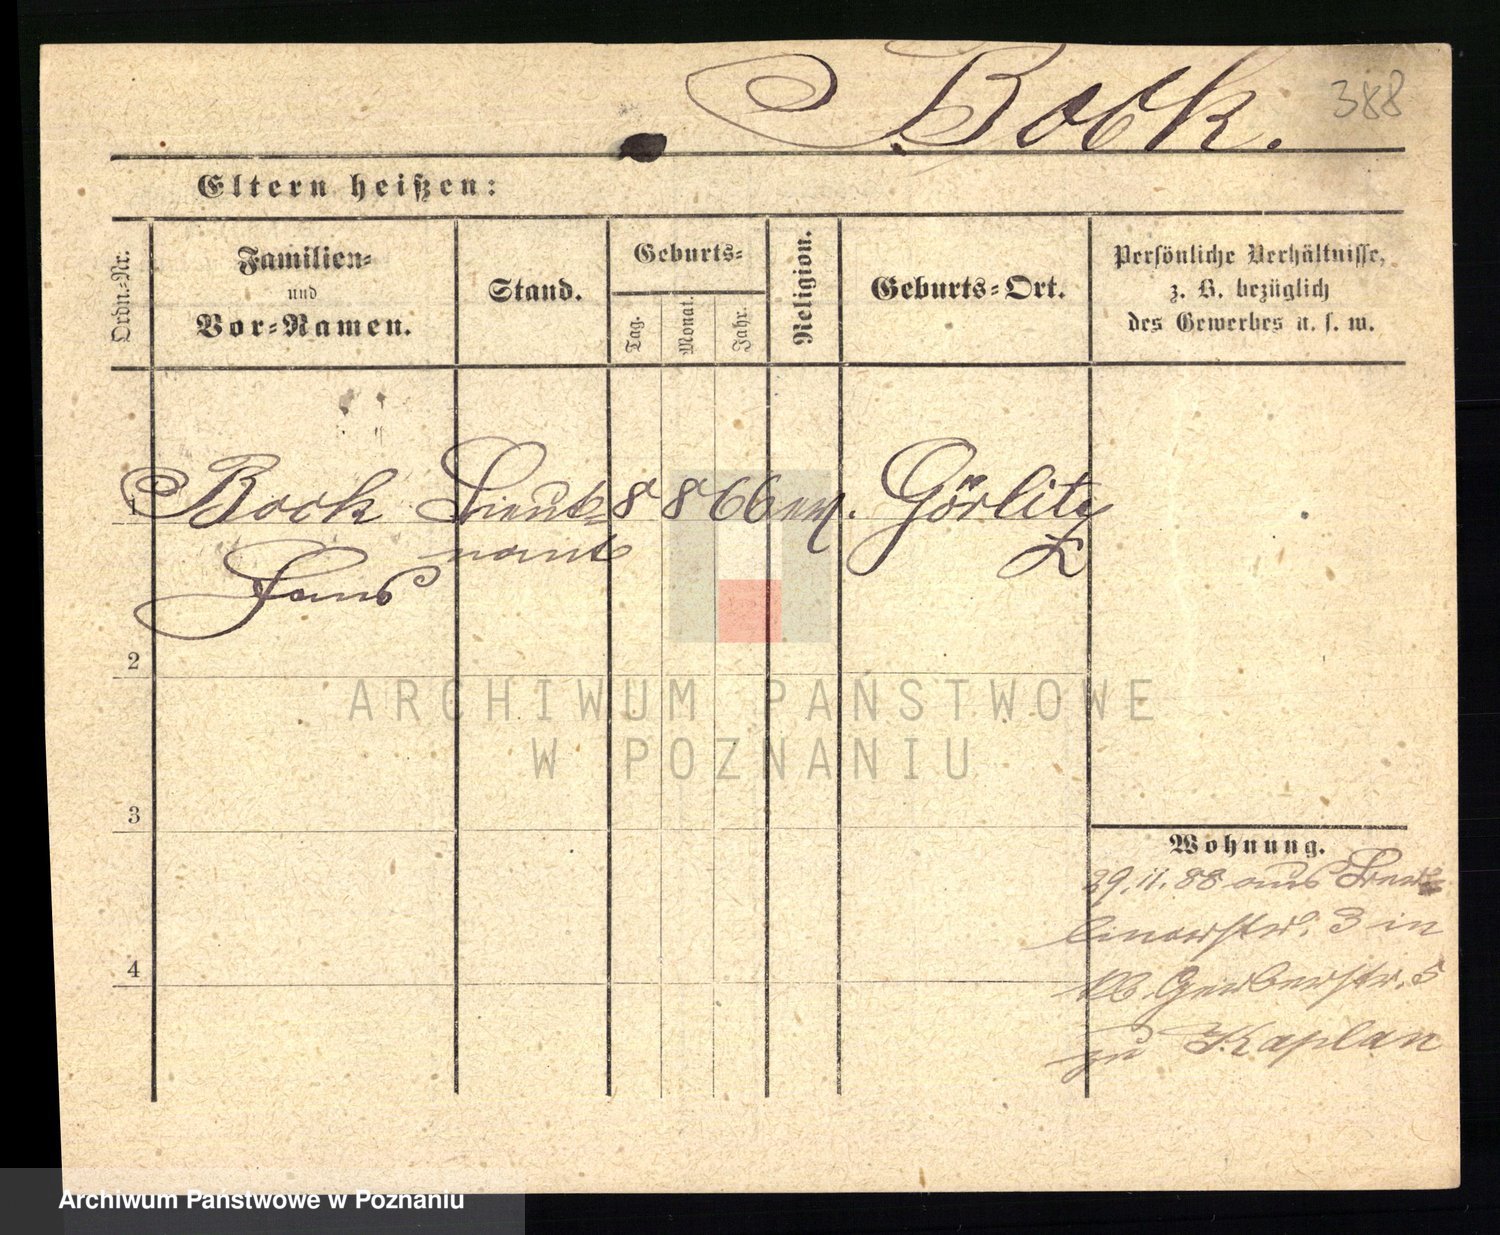 Bock.
388
Eltern heißen:
Ordn.-Nr.
Familien-
und
Vor-Namen.
Stand.
Geburts-
Tag.
Monat.
Jahr.
Religion.
Geburts-Ort.
Persönliche Verhältnisse,
z. B. bezüglich
des Gewerbes u. s. w.
1 Bock Lieut- 8 8 66 ev. Görlitz
nant
Hans
2
3
4
Wohnung.
29. 11. 88 aus
3 in
Gerberstr. 5
zu Kaplan
ARCHIWUM PAŃSTWOWE
W POZNANIU
Archiwum Państwowe w Poznaniu